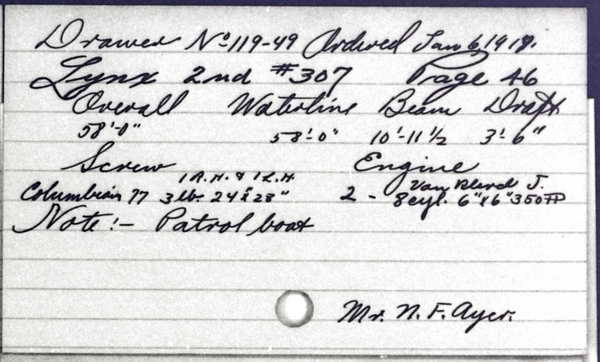 Drawer No 119-49 Ordered Jan 6, 1917.
Lynx 2nd #307 Page 46
Overall Waterline Beam Draft
58'-0" 58'-0" 10'-11 1/2 3'-6"
Screw Engine
1 R.H. & 1 L.H. Van Blerck J.
Columbian 77 3 lb. 24"x28" 2 - 8 cyl. 6"x6" 350 HP
Note:- Patrol boat
Mr. N. F. Ayer.